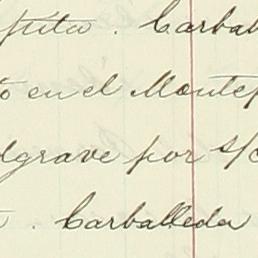 Carbal
en el Montep
dgrave por s/c
. Carballeda